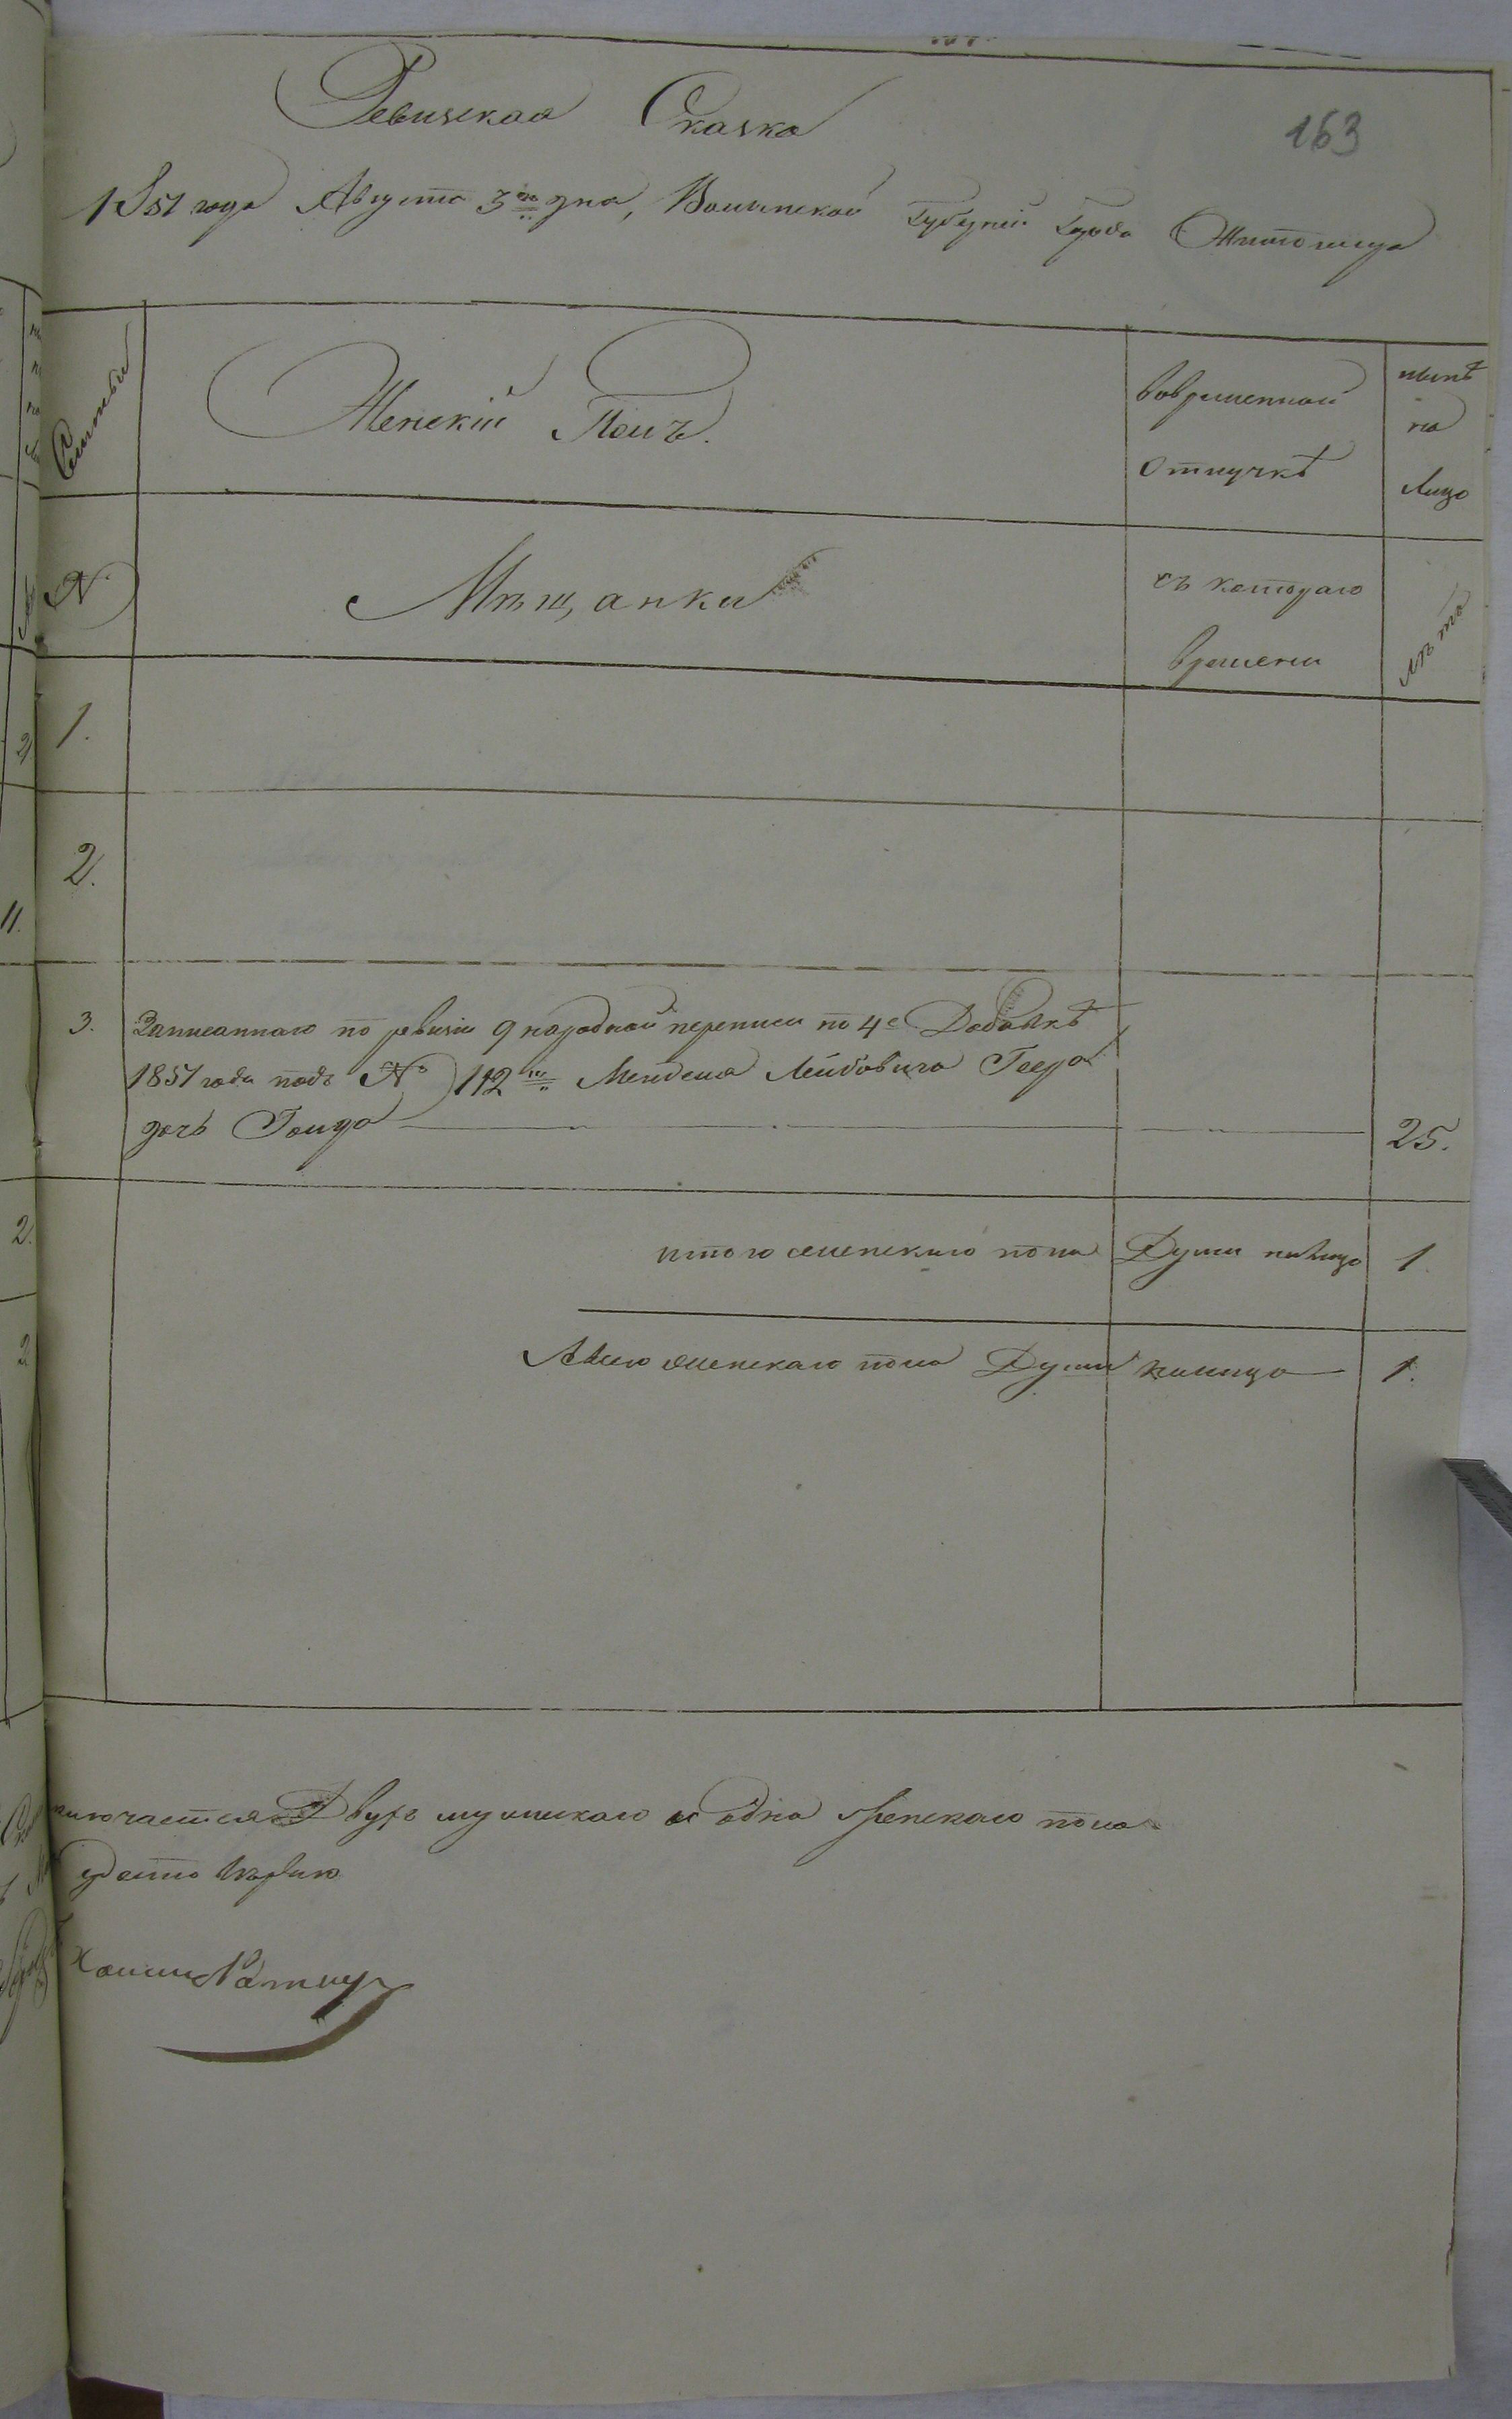 163
Ревизская Сказка
1851 года Августа 3го дня, Волынской Губерніи Города Житомира
Семьи
Женскій Полъ.
вовременной
отлучкѣ
нынѣ
на
лицо
№
Мѣщанки
съ котораго
времени
лѣта
1.
2.
3.
Записаннаго по ревизіи 9 народной переписи по 4й Добавкѣ
1851 года подъ № 112м Менделя Лейбовича Геера
дочь Голда
25.
итого женскаго пола Души налицо 1
Авсего женскаго пола Души налицо 1.
лючается Двухъ мужескаго и одна женскаго пола
Хаимъ Ратнеръ